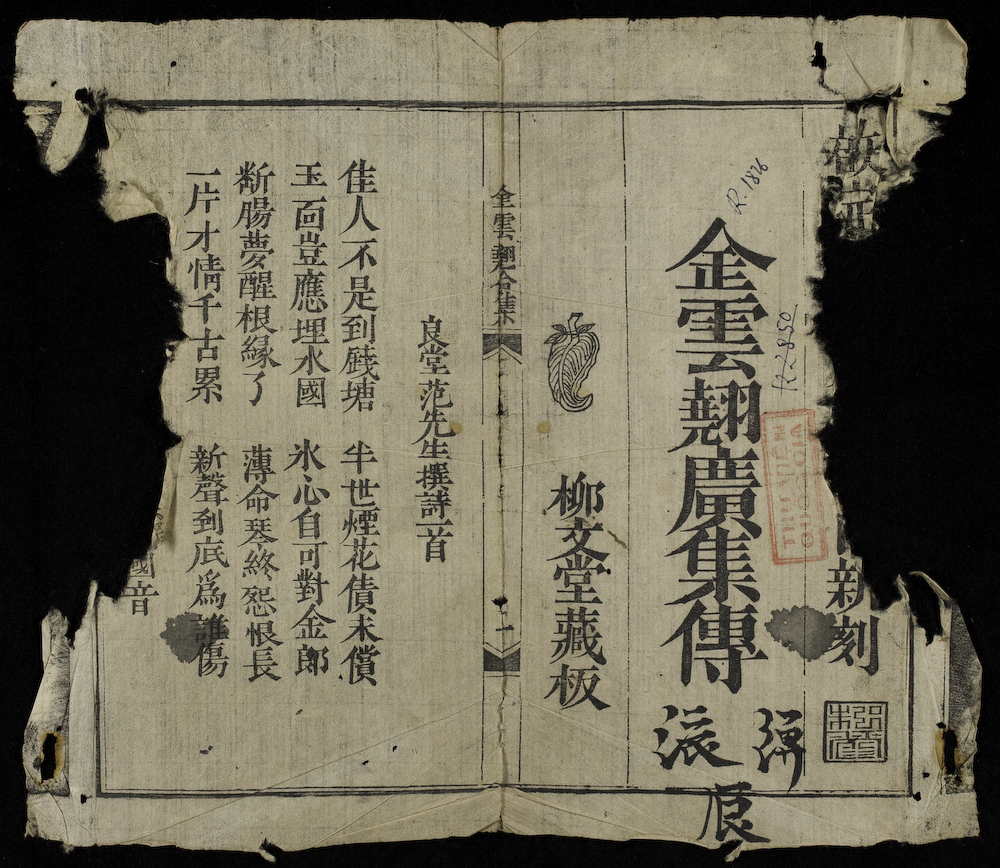 新刻
金雲翹廣集傳
R.1836
R.2850
THƯ VIỆN
QUỐC GIA
派
辰
柳文堂藏板
金雲翹合集
一
良堂范先生撰詩一首
佳人不是到賤塘 半世煙花債未償
玉面豈應埋水國 氷心自可對金郎
斷腸夢醒根緣了 薄命琴終怨恨長
一片才情千古累 新聲到底爲誰傷
國音